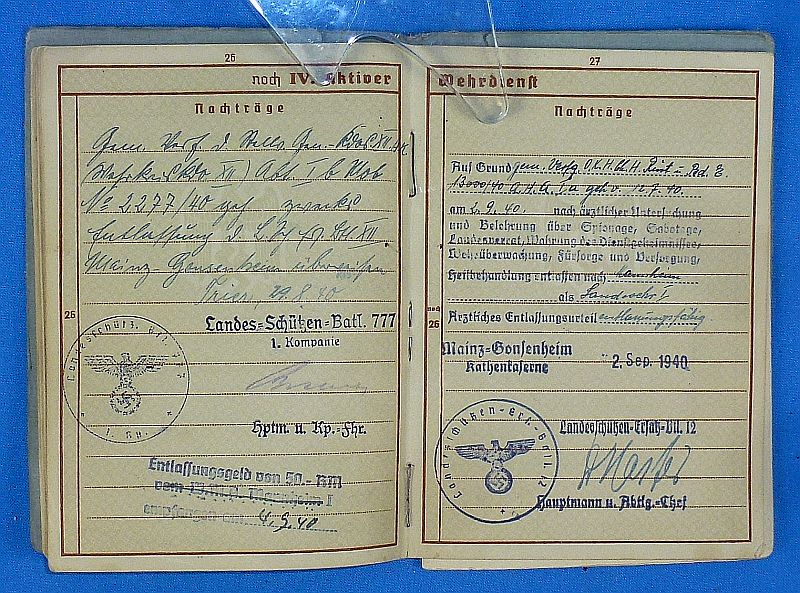 26
noch IV. Aktiver
Nachträge
Gem. Verf. d. Stellv. Gen.-Kdos XII. A.K.
(Wehrkreiskdo XII) Abt. I b
No 2277/40 geh zwecks
Entlassung d. L. XII
Mainz Gonsenheim überwiesen
Trier, 29.8.40
26
Landes=Schützen=Batl. 777
1. Kompanie
Hptm. u. Kp.-Fhr.
Entlassungsgeld von 50.- RM
vom Mannheim I
empfangen am 4.9.40
27
Wehrdienst
Nachträge
Auf Grund gem. Verfg. O.K.H. Ch.H. Rüst u. Bd. E.
13000/40 A.H.A. I a geh v. 12.7.40.
am 2.9.40. nach ärztlicher Untersuchung
und Belehrung über Spionage, Sabotage,
Landesverrat, Wahrung des Dienstgeheimnisses,
Wehrüberwachung, Fürsorge und Versorgung,
Heilbehandlung entlassen nach Mannheim
als
noch
26
Ärztliches Entlassungsurteil
Mainz=Gonsenheim
Kathenkaserne
2. Sep. 1940
Landesschützen=Ersatz=Btl. 12
Hauptmann u. Abtlg.=Chef